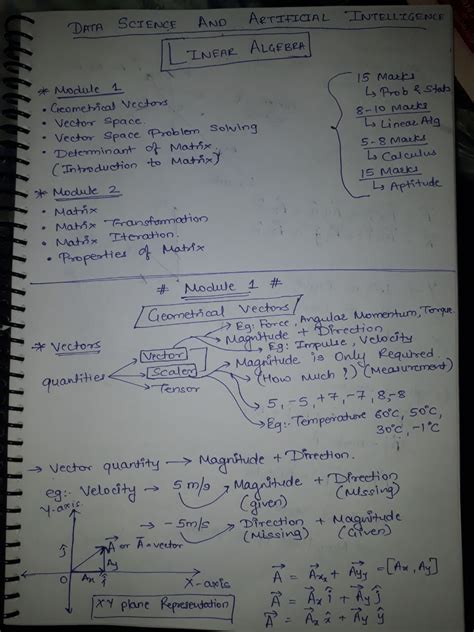 DATA SCIENCE AND ARTIFICIAL INTELLIGENCE
LINEAR ALGEBRA
* Module 1
• Geometrical Vectors
• Vector Space
• Vector Space Problem Solving
• Determinant of Matrix
(Introduction to Matrix)
* Module 2
• Matrix
• Matrix Transformation
• Matrix Iteration.
• Properties of Matrix
15 Marks
↳ Prob & Stats
8-10 Marks
↳ Linear Alg
5-8 Marks
↳ Calculus
15 Marks
↳ Aptitude
# Module 1 #
Geometrical Vectors
* Vectors
quantities
Vector
Scaler
Tensor
→ Eg: Force, Angular Momentum, Torque
→ Magnitude + Direction
→ Eg: Impulse, Velocity
→ Magnitude is Only Required
(How Much?) (Measurement)
→ 5, -5, +7, -7, 8, -8
→ Eg:- Temperature 60°C, 50°C,
30°C, -1°C
→ Vector quantity → Magnitude + Direction.
eg:- Velocity → 5 m/s → Magnitude + Direction
(given) (Missing)
→ -5m/s → Direction + Magnitude
(Missing) (Given)
Y-axis
ĵ
A⃗ or Ā = vector
Ay
O
Ax
î
X-axis
XY plane Representation
A⃗ = A⃗xₓ + A⃗yᵧ = [Ax, Ay]
A⃗ = A⃗x î + A⃗y ĵ
A⃗ = A⃗x x̂ + A⃗y ŷ